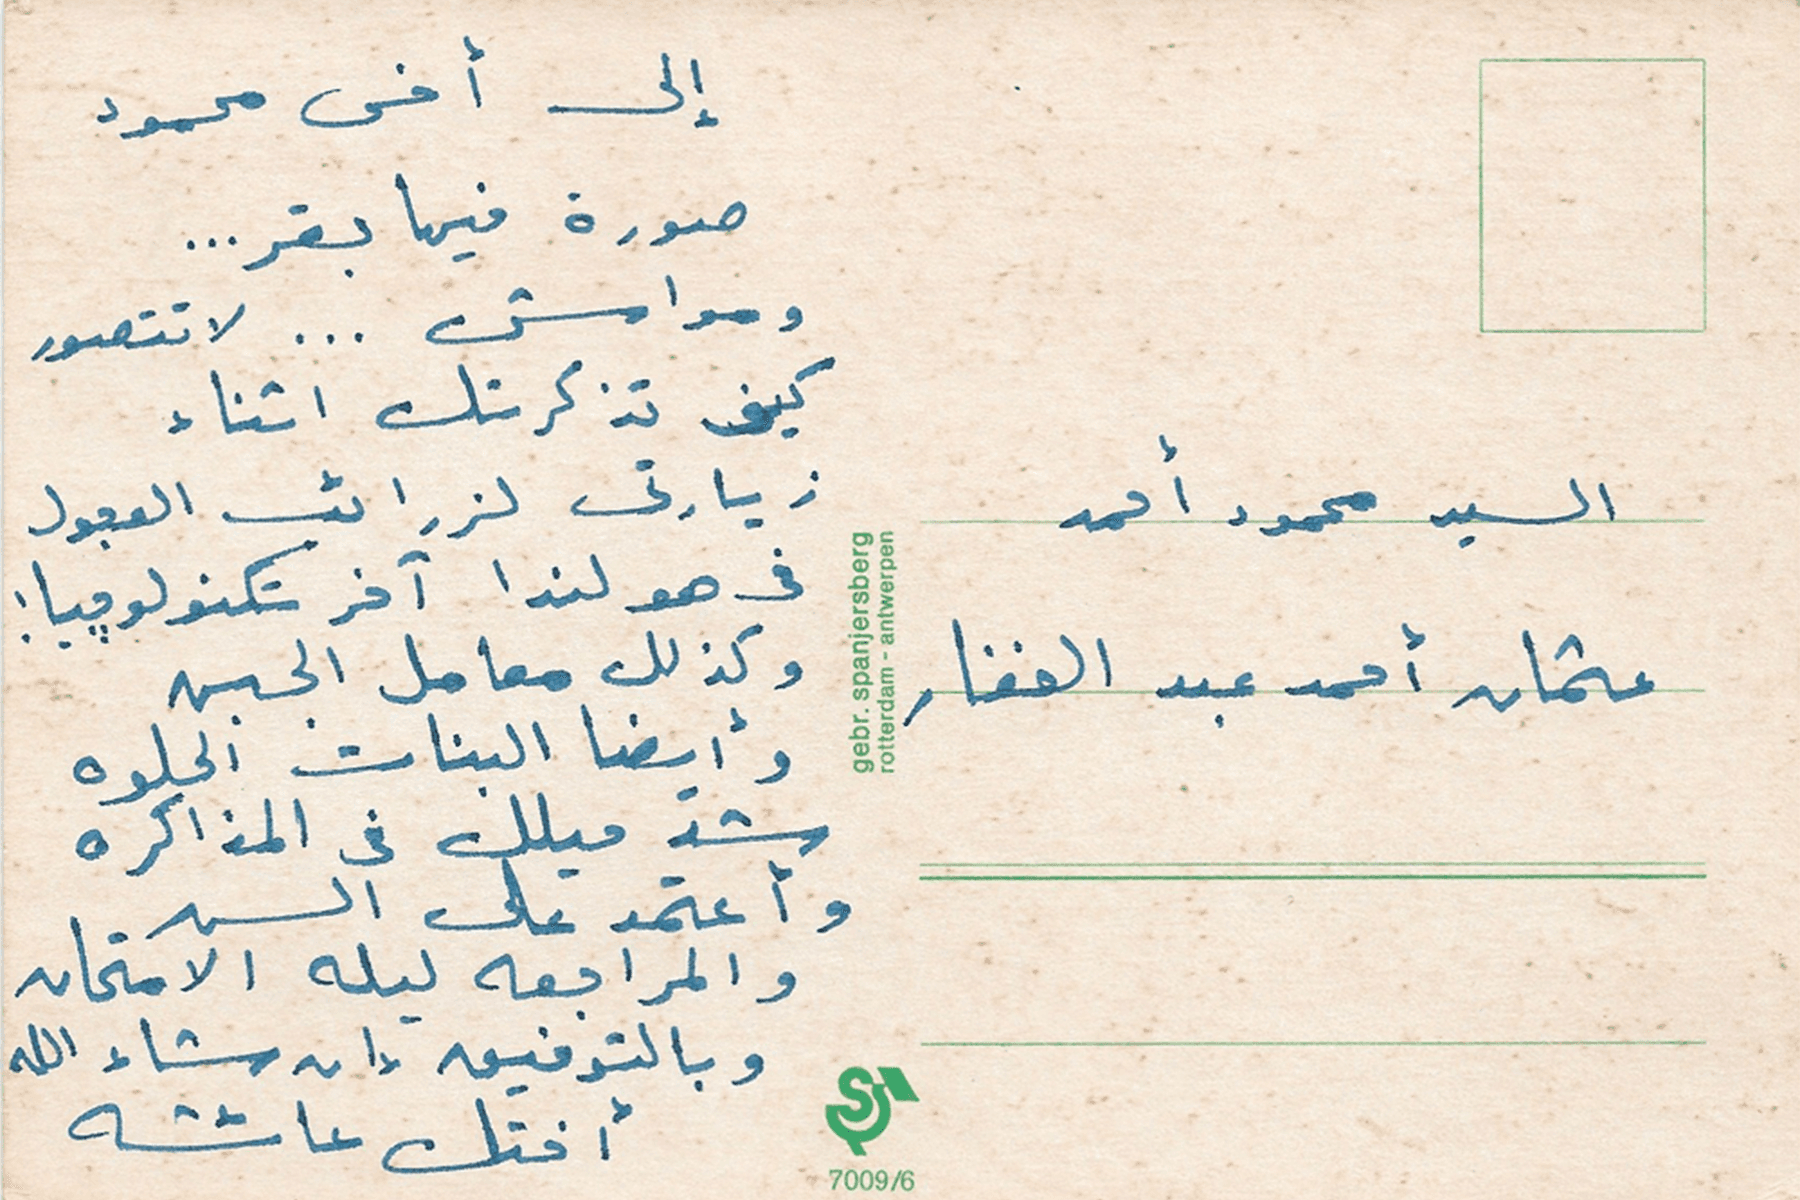 إلى أخى محمود
صورة فيها بقر...
ومواشى ... لا تتصور
كيف تذكرتك اثناء
زيارتى لزرائب العجول
فى هولندا آخر تكنولوچيا!
وكذلك معامل الجبن
وأيضا البنات الحلوه
شد حيلك فى المذاكره
وأعتمد على السـ
والمراجعه ليله الامتحان
وبالتوفيق إن شاء الله
أختك عائشه
السيد محمود أحمد
عثمان أحمد عبد الغفار
gebr. spanjersberg
rotterdam - antwerpen
7009/6